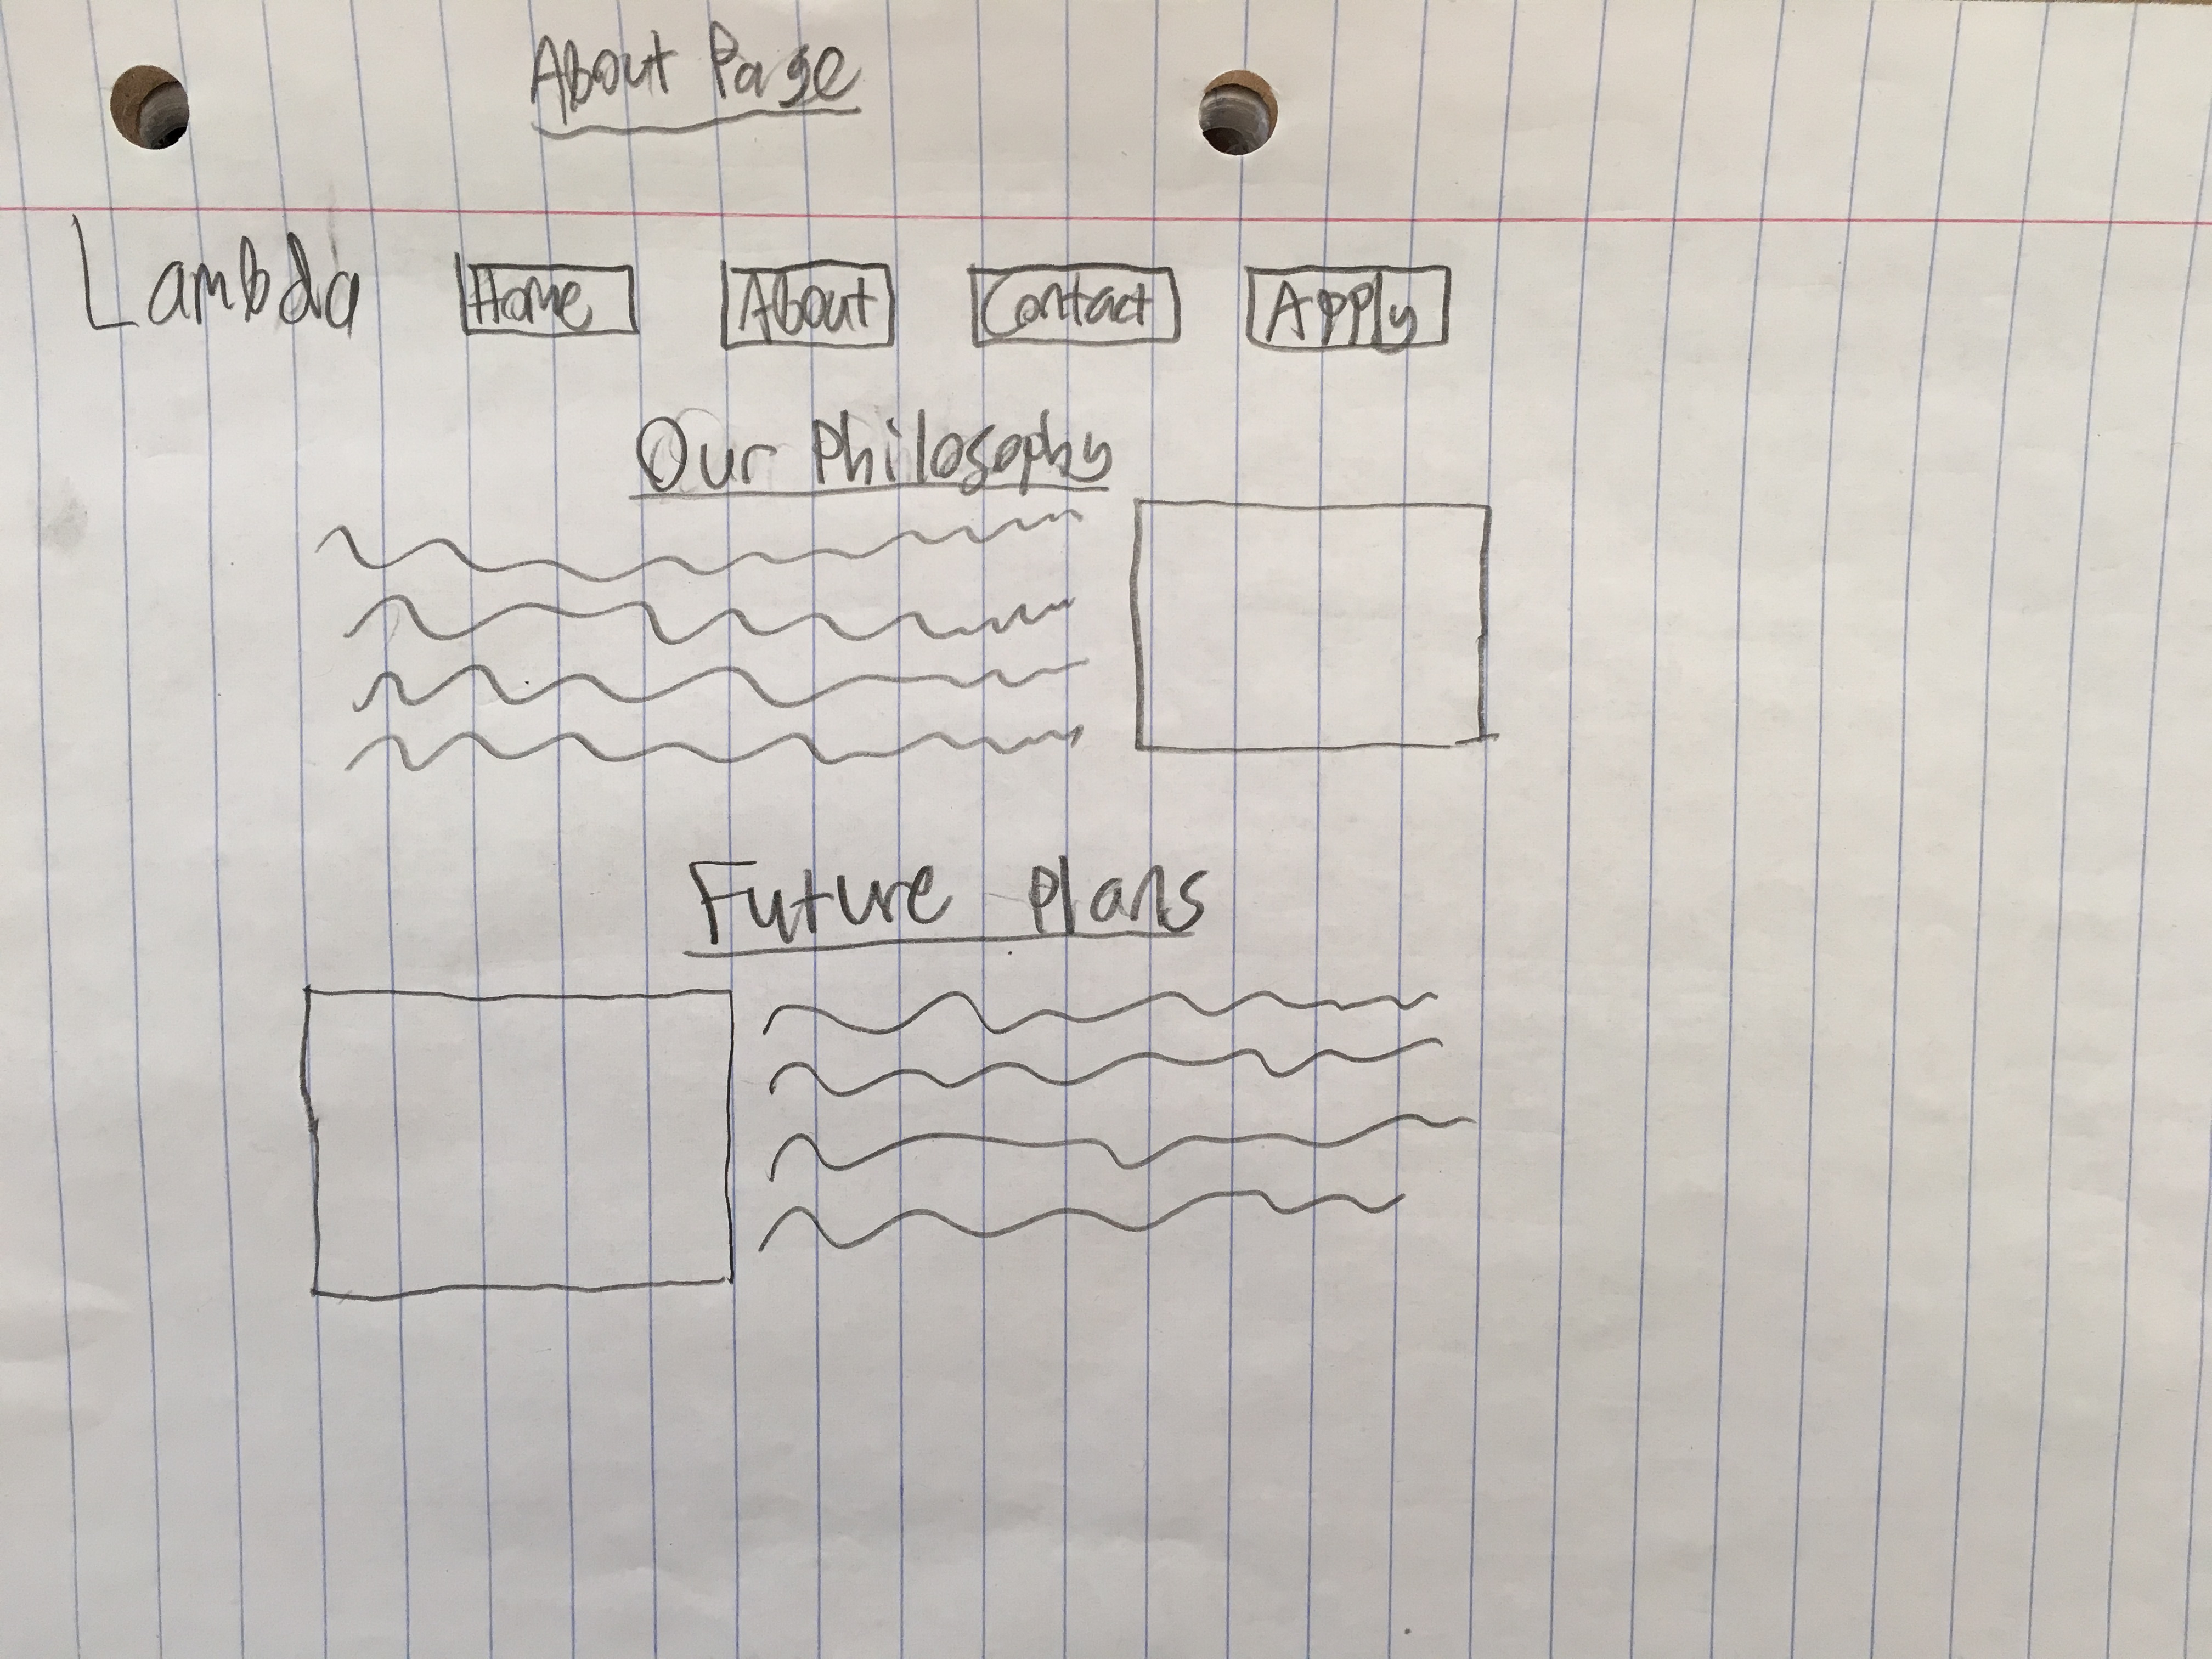 About Page
Lambda Home About Contact Apply
Our Philosophy
Future Plans